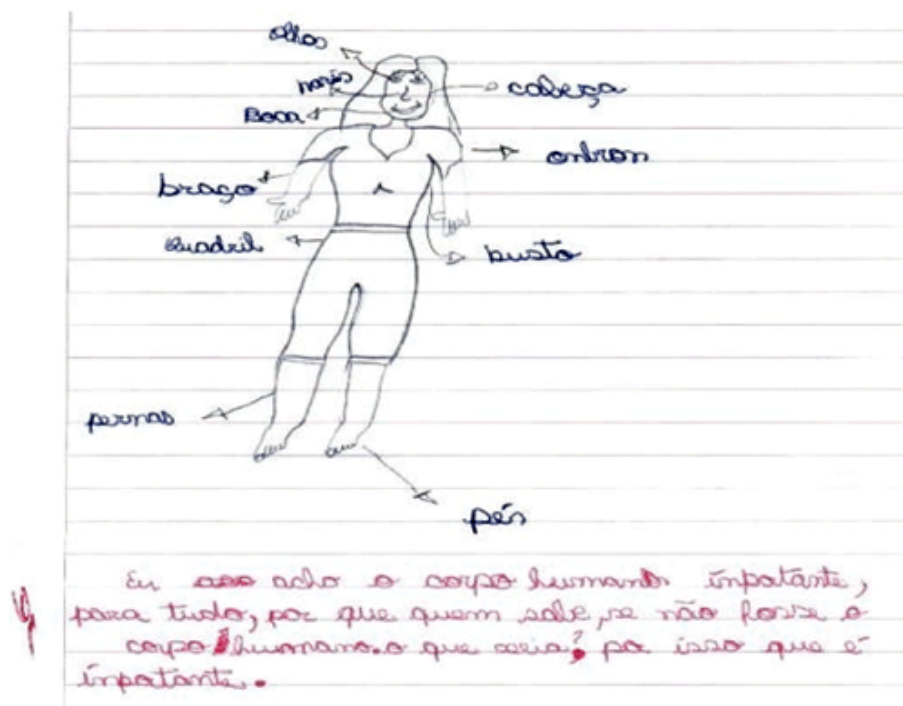 olhos
naris
Boca
cabeça
onbros
braço
Quadril
busto
pernas
pés
Eu acho o corpo humano inpotante,
para tudo, por que quem sabe, se não fosse o
corpo humano. o que seria? po isso que é
inpotante.